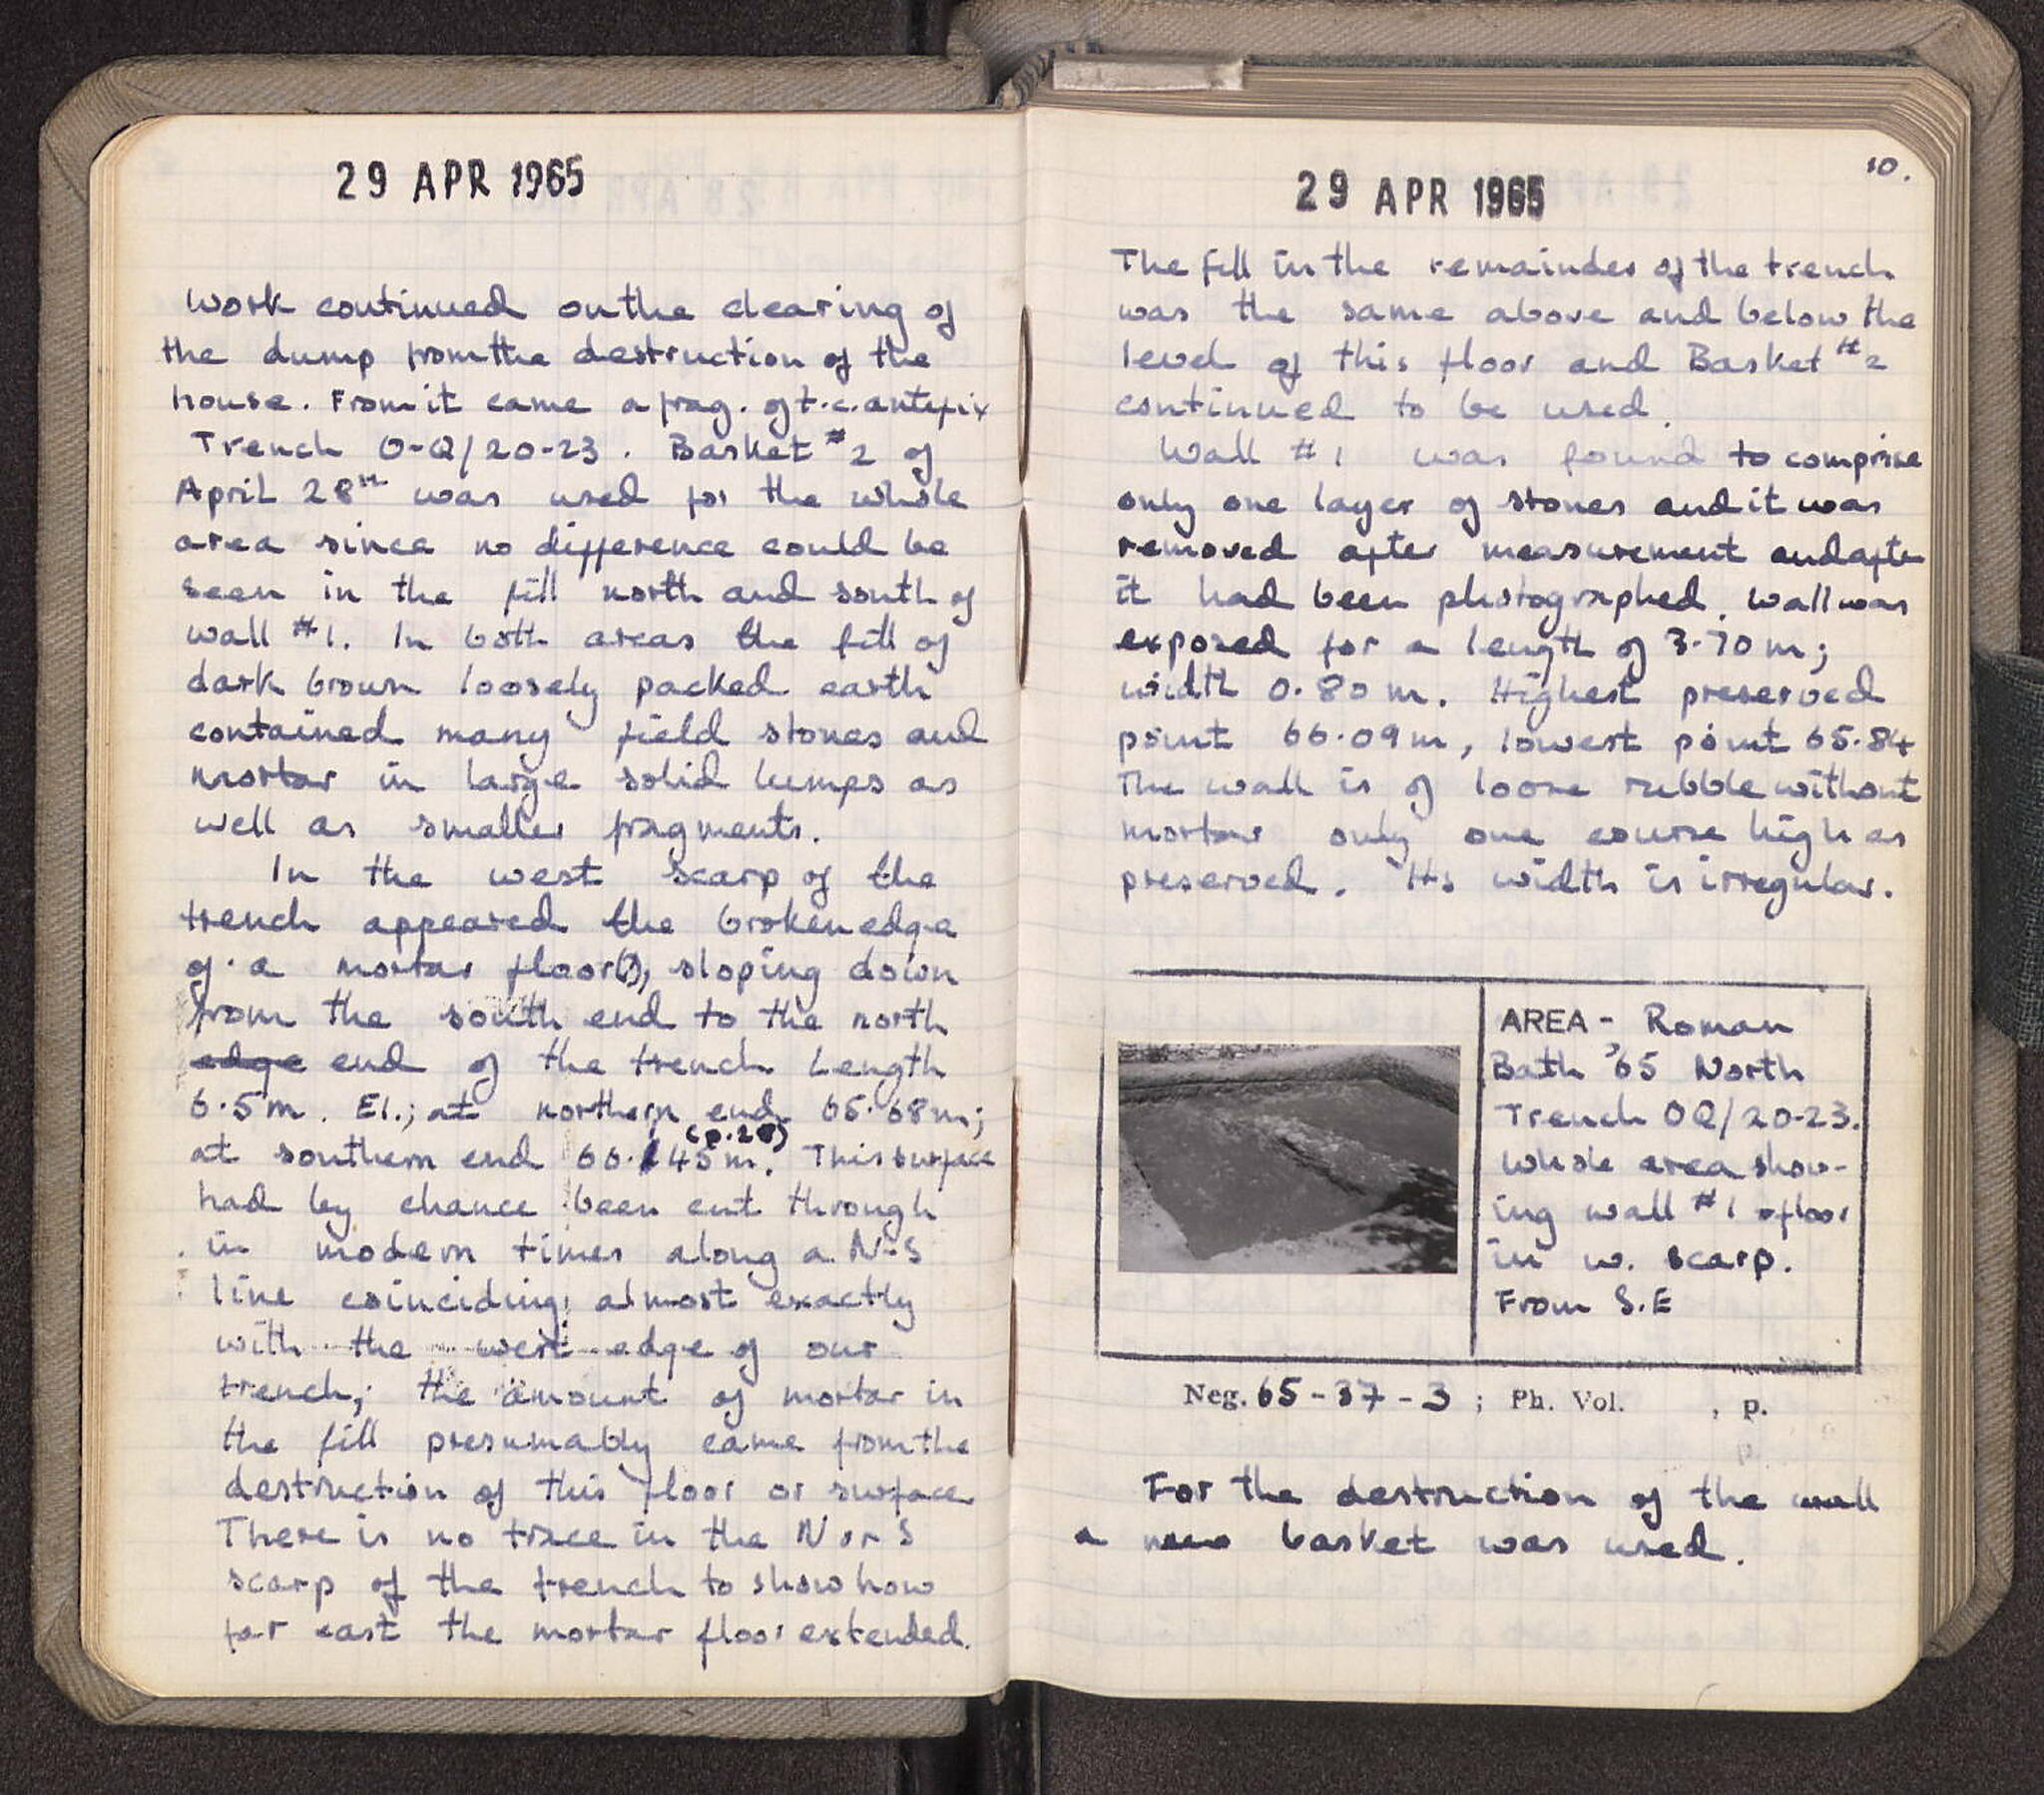 29 APR 1965
Work continued on the clearing of
the dump from the destruction of the
house. From it came a frag. of t.c. antefix
Trench O-Q/20-23. Basket #2 of
April 28th was used for the whole
area since no difference could be
seen in the fill north and south of
wall #1. In both areas the fill of
dark brown loosely packed earth
contained many field stones and
mortar in large solid lumps as
well as smaller fragments.
In the west scarp of the
trench appeared the broken edge
of a mortar floor(?), sloping down
from the south end to the north
edge end of the trench Length
6.5m. El.; at northern end 65.68m;
(p.28)
at southern end 66.45m. This surface
had by chance been cut through
in modern times along a N-S
line coinciding almost exactly
with the west edge of our
trench; the amount of mortar in
the fill presumably came from the
destruction of this floor or surface
There is no trace in the N or S
scarp of the trench to show how
far east the mortar floor extended.
10.
29 APR 1965
The fill in the remainder of the trench
was the same above and below the
level of this floor and Basket #2
continued to be used.
Wall #1 was found to comprise
only one layer of stones and it was
removed after measurement and after
it had been photographed. Wall was
exposed for a length of 3.70m;
width 0.80m. Highest preserved
point 66.09m, lowest point 65.84
The wall is of loose rubble without
mortar only one course high as
preserved. Its width is irregular.
AREA - Roman
Bath '65 North
Trench OQ/20-23.
Whole area show-
ing wall #1 + floor
in w. scarp.
From S.E
Neg. 65-37-3 ; Ph. Vol. , p.
For the destruction of the wall
a new basket was used.